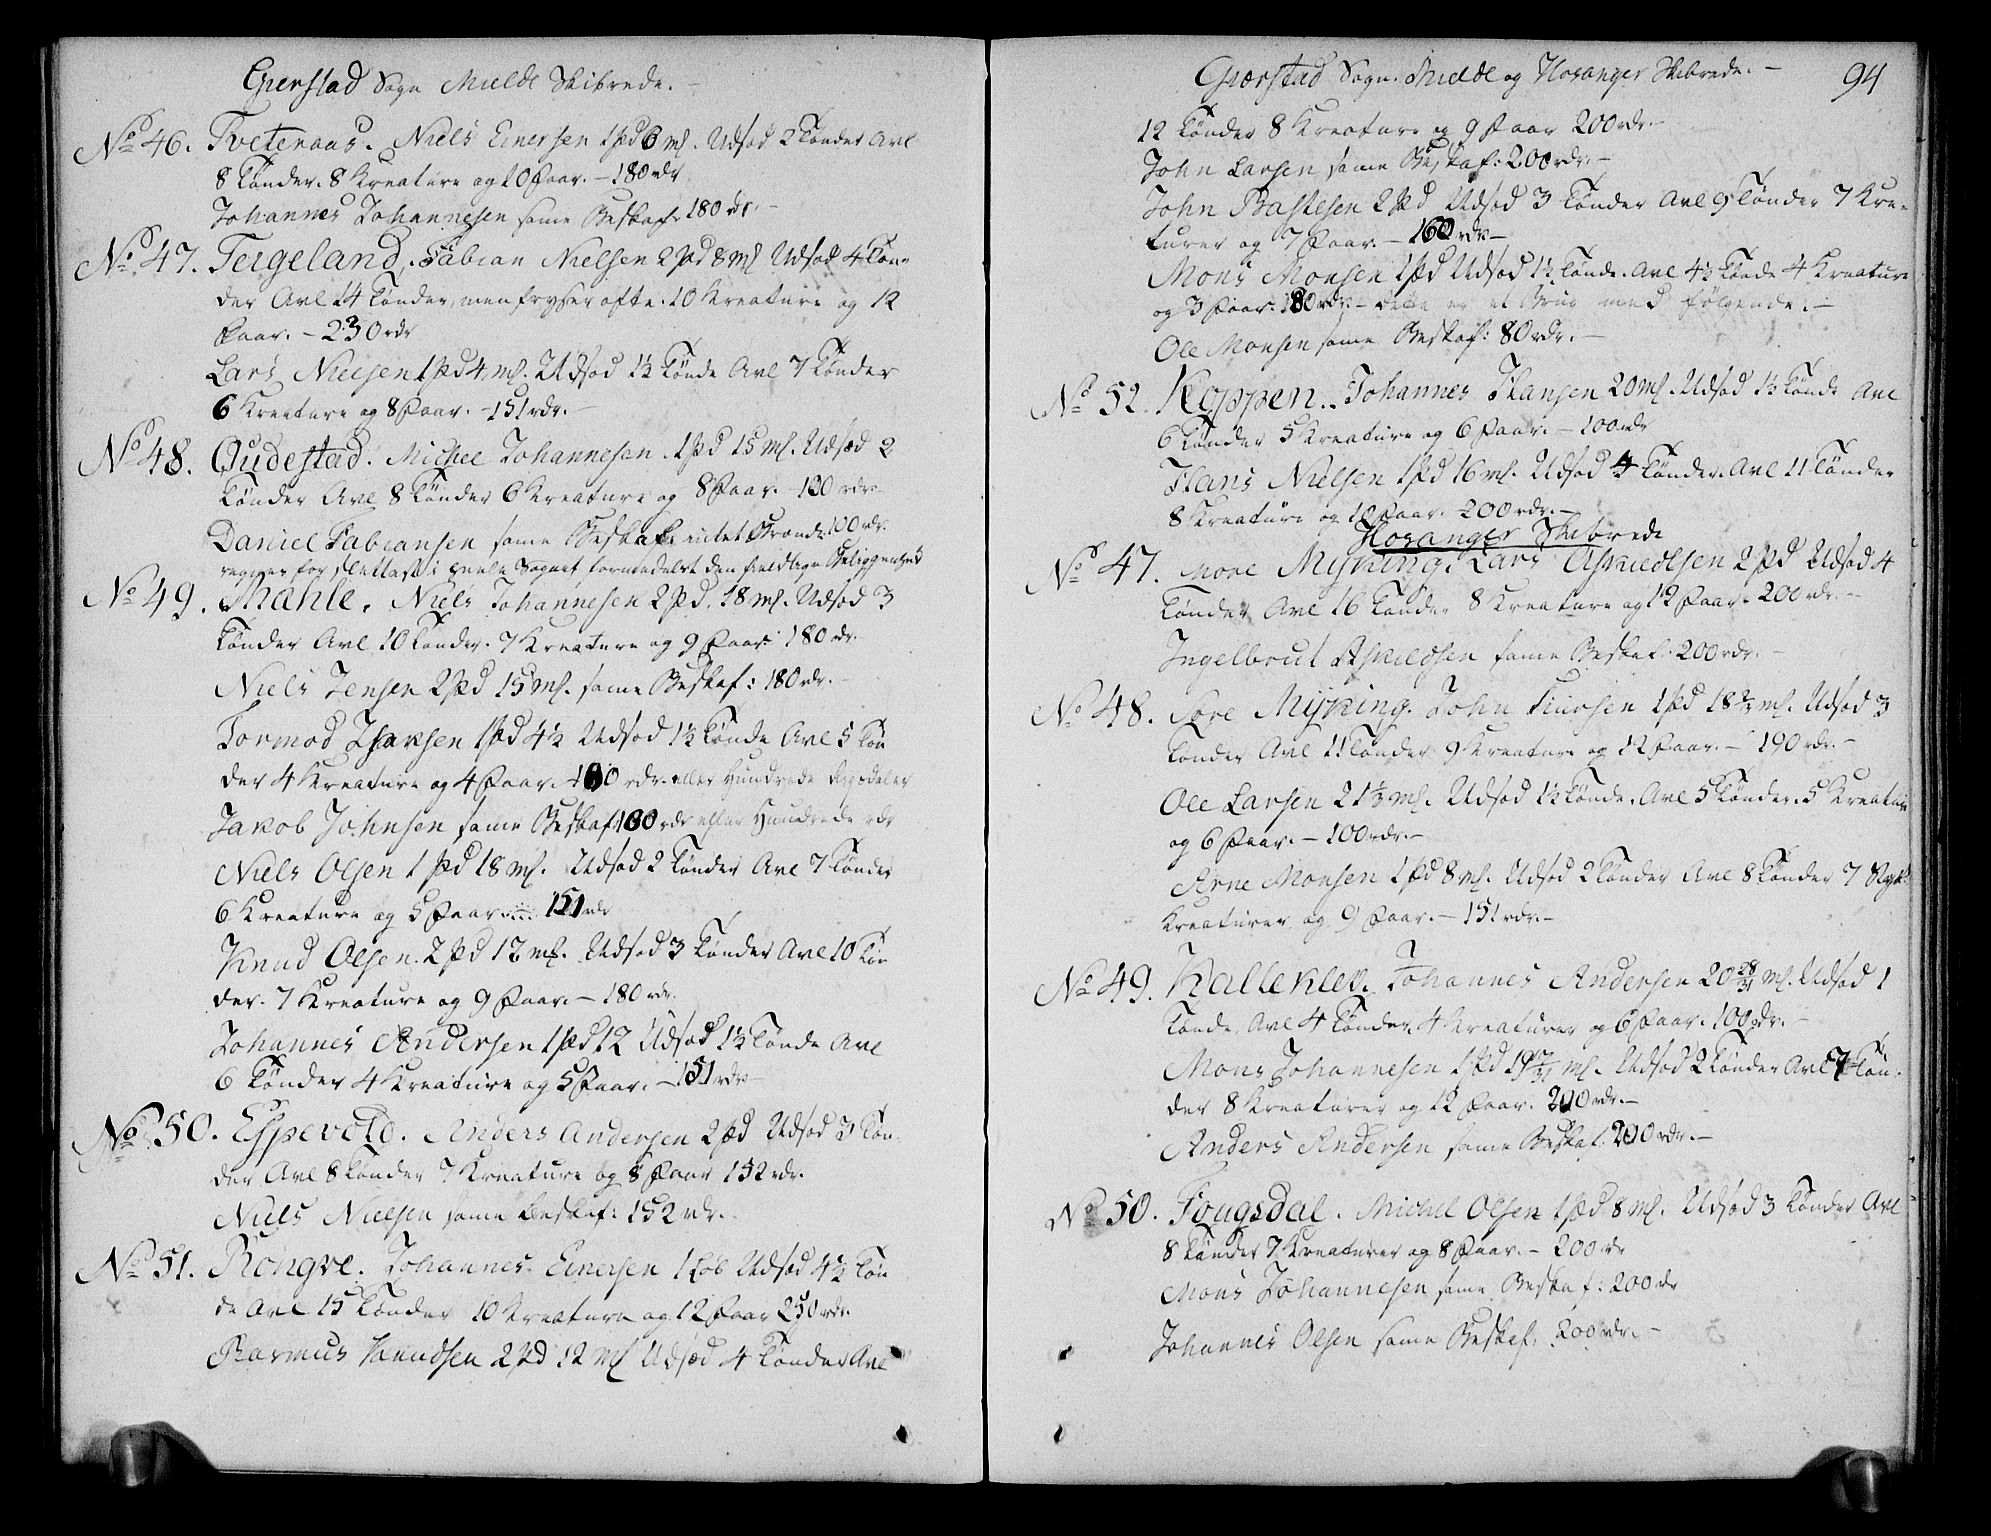 Gierstad Sogn Mielde Skibrede.
No 46. Tvetenaas. Niels Einersen 1 pd 6 mk. Udsæd 2 Tønder Avl
8 Tønder. 8 Kreature og 10 Faar. – 180 rdr
Johannes Johannesen same Beskaf: 180 rdr. –
No 47. Teigeland. Fabian Nielsen 2 pd 8 mk Udsæd 4 Tøn-
der Avl 14 Tønder, men fryser ofte. 10 Kreature og 12
Faar. – 230 rdr
Lars Nielsen 1 pd 4 mk. Udsæd 1½ Tønde Avl 7 Tønder
6 Kreature og 8 Faar. – 151 rdr. –
No 48. Qudestad. Michel Johannesen. 1 pd 15 mk. Udsæd 2
Tønder Avl 8 Tønder 6 Kreature og 8 Faar. – 130 rdr
Daniel Fabiansen same Beskaf: intet Brænde. 100 rdr.
for dette i heele Sognet formedelst den fieldlige Beliggenhed
No 49. Mæhle. Niels Johannesen 2 pd. 18 mk. Udsæd 3
Tønder Avl 10 Tønder. 7 Kreature og 9 Faar. 180 rdr.
Niels Jensen 2 pd 15 mk. same Beskaf: 180 rdr. –
Tormod Isaksen 1 pd 4½ Udsæd 1½ Tønde Avl 5 Tøn
der 4 Kreature og 4 Faar. – 100 rdr. eller Hundrede Rigsdaler
Jakob Johnsen same Beskaf: 100 rdr eller Hundrede rdr
Niels Olsen 1 pd 18 mk. Udsæd 2 Tønder Avl 7 Tønder
6 Kreature og 5 Faar. – 151 rdr
Knud Olsen. 2 pd 12 mk. Udsæd 3 Tønder Avl 10 Tøn
der. 7 Kreature og 9 Faar. – 180 rdr.
Johannes Andersen 1 pd 12 Udsæd 1½ Tønde Avl
6 Tønder 4 Kreature og 5 Faar. – 151 rdr –
No 50. Espevold. Anders Andersen 2 pd Udsæd 3 Tøn
der Avl 8 Tønder 7 Kreature og 8 Faar 152 rdr.
Niels Nielsen same Beskaf: 152 rdr. –
No 51. Rongve. Johannes Einersen 1 Løb Udsæd 4½ Tøn
de Avl 15 Tønder 10 Kreature og 12 Faar 250 rdr.
Rasmus Knudsen 2 pd 12 mk Udsæd 4 Tønder Avl
Gierstad Sogn. Mielde og Hosanger Skibrede. –
94
12 Tønder 8 Kreature og 9 Faar 200 rdr. –
John Larsen same Beskaf: 200 rdr. –
John Bastesen 2 pd Udsæd 3 Tønder Avl 9 Tønder 7 Kre-
turer og 7 Faar. – 160 rdr –
Mons Monsen 1 pd Udsæd 1½ Tønde. Avl 4½ Tønde 4 Kreature
og 3 Faar. 80 rdr. – dette er et Brug med følgende. –
Ole Monsen same Beskaf: 80 rdr. –
No 52. Koppen. Johannes Hansen 20 mk. Udsæd 1½ Tønde Avl
6 Tønder 5 Kreature og 6 Faar. – 100 rdr
Hans Nielsen 1 pd 16 mk. Udsæd 4 Tønder. Avl 11 Tønder
8 Kreature og 10 Faar. 200 rdr. –
Hosanger Skibrede
No 47. More Myking. Lars Askieldsen 2 pd Udsæd 4
Tønder Avl 16 Tønder 8 Kreature og 12 Faar. 200 rdr. –
Ingelbrict Askieldsen same Beskaf: 200 rdr. –
No 48. Søre Myking. John Finersen 1 pd 18 ¾ mk. Udsæd 3
Tønder Avl 11 Tønder 9 Kreature og 12 Faar. – 190 rdr. –
Ole Larsen 21 ⅓ mk. Udsæd 1½ Tønde. Avl 5 Tønder. 5 Kreature
og 6 Faar. – 100 rdr. –
Arne Monsen 1 pd 8 mk. Udsæd 2 Tønder Avl 8 Tønder 7
Kreaturer og 9 Faar. – 151 rdr. –
No 49. Kalleklev. Johannes Andersen 20 28/31 mk. Udsæd 1
Tønde. Avl 4 Tønder. 4 Kreaturer og 6 Faar. 100 rdr. –
Mons Johannesen 1 pd 19 17/31 mk. Udsæd 2 Tønder Avl 7 Tøn-
der 8 Kreaturer og 12 Faar. 200 rdr. –
Anders Andersen same Beskaf: 200 rdr. –
No 50. Fougsdal. Michel Olsen 1 pd 8 mk. Udsæd 3 Tønder Avl
8 Tønder 7 Kreaturer og 8 Faar. – 200 rdr
Mons Johannesen same Beskaf: 200 rdr
Johannes Olsen same Beskaf: 200 rdr. –